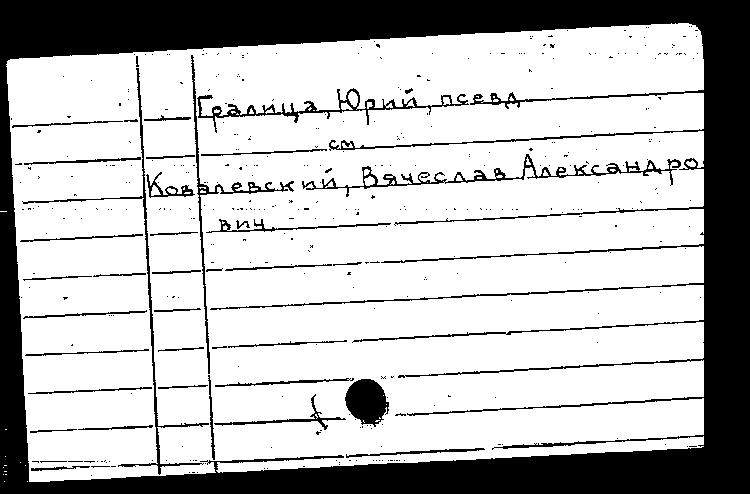 Гралица, Юрий, псевд
см.
Ковалевский, Вячеслав Александро
вич.